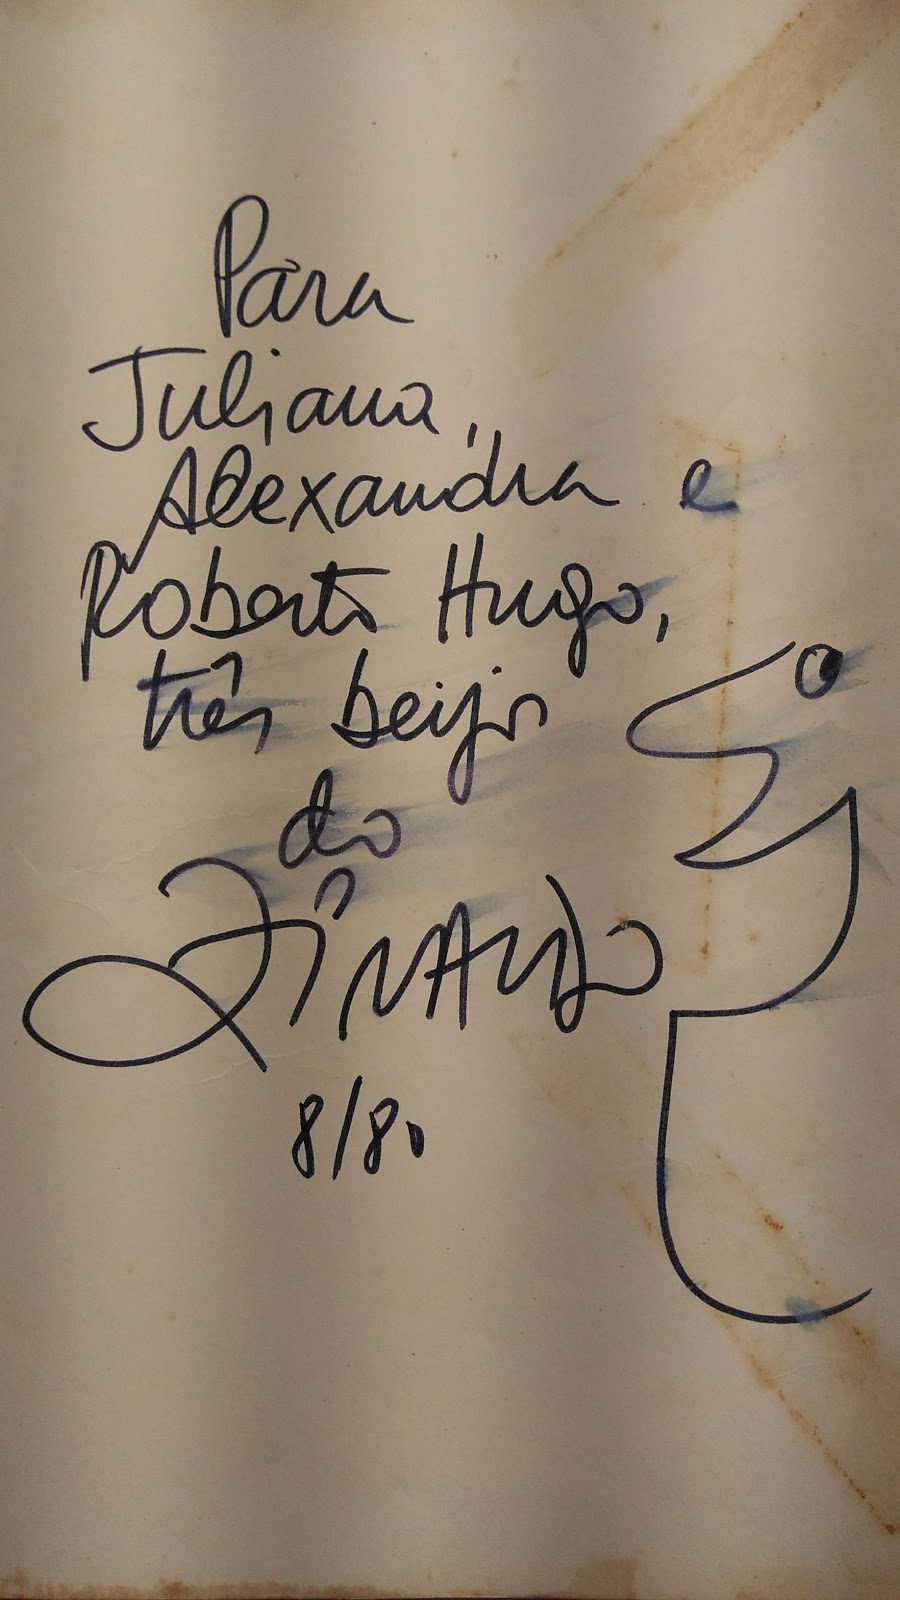 Para
Juliana,
Alexandra e
Roberto Hugo,
três beijos
do
ZIRALDO
8/80